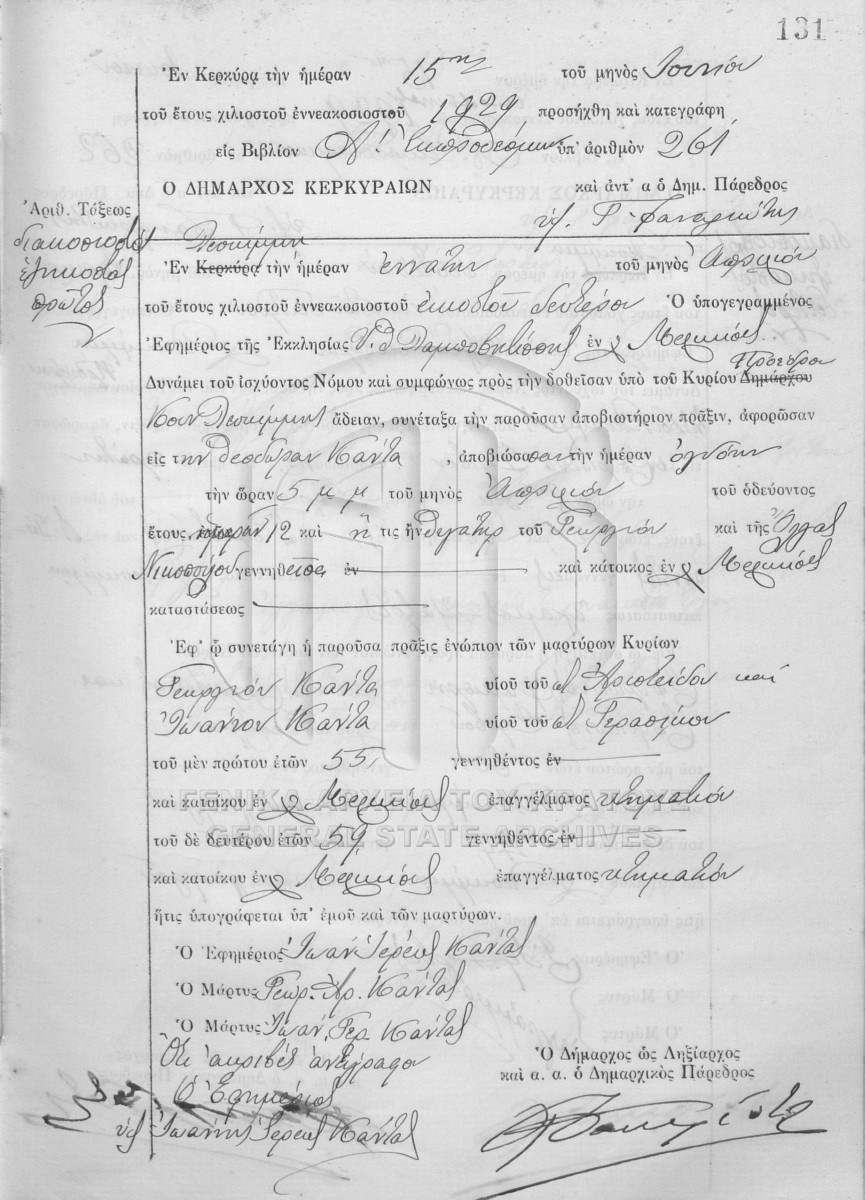 131
Ἐν Κερκύρᾳ τὴν ἡμέραν 15ην τοῦ μηνὸς Ἰουνίου
τοῦ ἔτους χιλιοστοῦ ἐννεακοσιοστοῦ 1929 προσήχθη καὶ κατεγράφη
εἰς Βιβλίον Α! Ἐκπροθέσμων ὑπ' ἀριθμὸν 261
Ο ΔΗΜΑΡΧΟΣ ΚΕΡΚΥΡΑΙΩΝ καὶ ἀντ' α ὁ Δημ. Πάρεδρος
Ἀριθ. Τάξεως
διακοσιοστός
ἑξηκοστός
πρῶτος
Λευκίμμῃ
Ἐν Κερκύρᾳ τὴν ἡμέραν ἐννάτην τοῦ μηνὸς Ἀπριλίου
τοῦ ἔτους χιλιοστοῦ ἐννεακοσιοστοῦ εἰκοστοῦ δευτέρου Ὁ ὑπογεγραμμένος
Ἐφημέριος τῆς Ἐκκλησίας Υ.Θ. ἐν Μελικίοις
Προέδρου
Δυνάμει τοῦ ἰσχύοντος Νόμου καὶ συμφώνως πρὸς τὴν δοθεῖσαν ὑπὸ τοῦ Κυρίου Δημάρχου
Κοιν Λευκίμμης ἄδειαν, συνέταξα τὴν παροῦσαν ἀποβιωτήριον πρᾶξιν, ἀφορῶσαν
εἰς την Θεοδώραν Κάντα, ἀποβιώσασαν τὴν ἡμέραν ὀγδόην
τὴν ὥραν 5 μμ τοῦ μηνὸς Ἀπριλίου τοῦ ὁδεύοντος
ἔτους, ἡμερῶν 12 καὶ ἥ τις ἦν θυγάτηρ τοῦ Γεωργίου καὶ τῆς Ὄλγας
γεννηθεῖσα ἐν καὶ κάτοικος ἐν Μελικίοις
καταστάσεως
Ἐφ' ᾧ συνετάγη ἡ παροῦσα πρᾶξις ἐνώπιον τῶν μαρτύρων Κυρίων
Γεωργίου Κάντα υἱοῦ τοῦ Ἀριστείδου καί
Ἰωάννου Κάντα υἱοῦ τοῦ Γερασίμου
τοῦ μὲν πρώτου ἐτῶν 55 γεννηθέντος ἐν
καὶ κατοίκου ἐν Μελικίοις ἐπαγγέλματος κτηματίου
ΓΕΝΙΚΑ ΑΡΧΕΙΑ ΤΟΥ ΚΡΑΤΟΥΣ
GENERAL STATE ARCHIVES
τοῦ δὲ δευτέρου ἐτῶν 59 γεννηθέντος ἐν
καὶ κατοίκου ἐν Μελικίοις ἐπαγγέλματος κτηματίου
ἥτις ὑπογράφεται ὑπ' ἐμοῦ καὶ τῶν μαρτύρων.
Ὁ Ἐφημέριος Ἰωάν Ἱερεὺς Κάντας
Ὁ Μάρτυς Γεωρ. Αρ. Κάντας
Ὁ Μάρτυς Ἰωάν. Γερ. Κάντας
Ὅτι ἀκριβὲς ἀντίγραφον
Ὁ Ἐφημέριος
Ἰωάννης Ἱερεὺς Κάντας
Ὁ Δήμαρχος ὡς Ληξίαρχος
καὶ α. α. ὁ Δημαρχικὸς Πάρεδρος